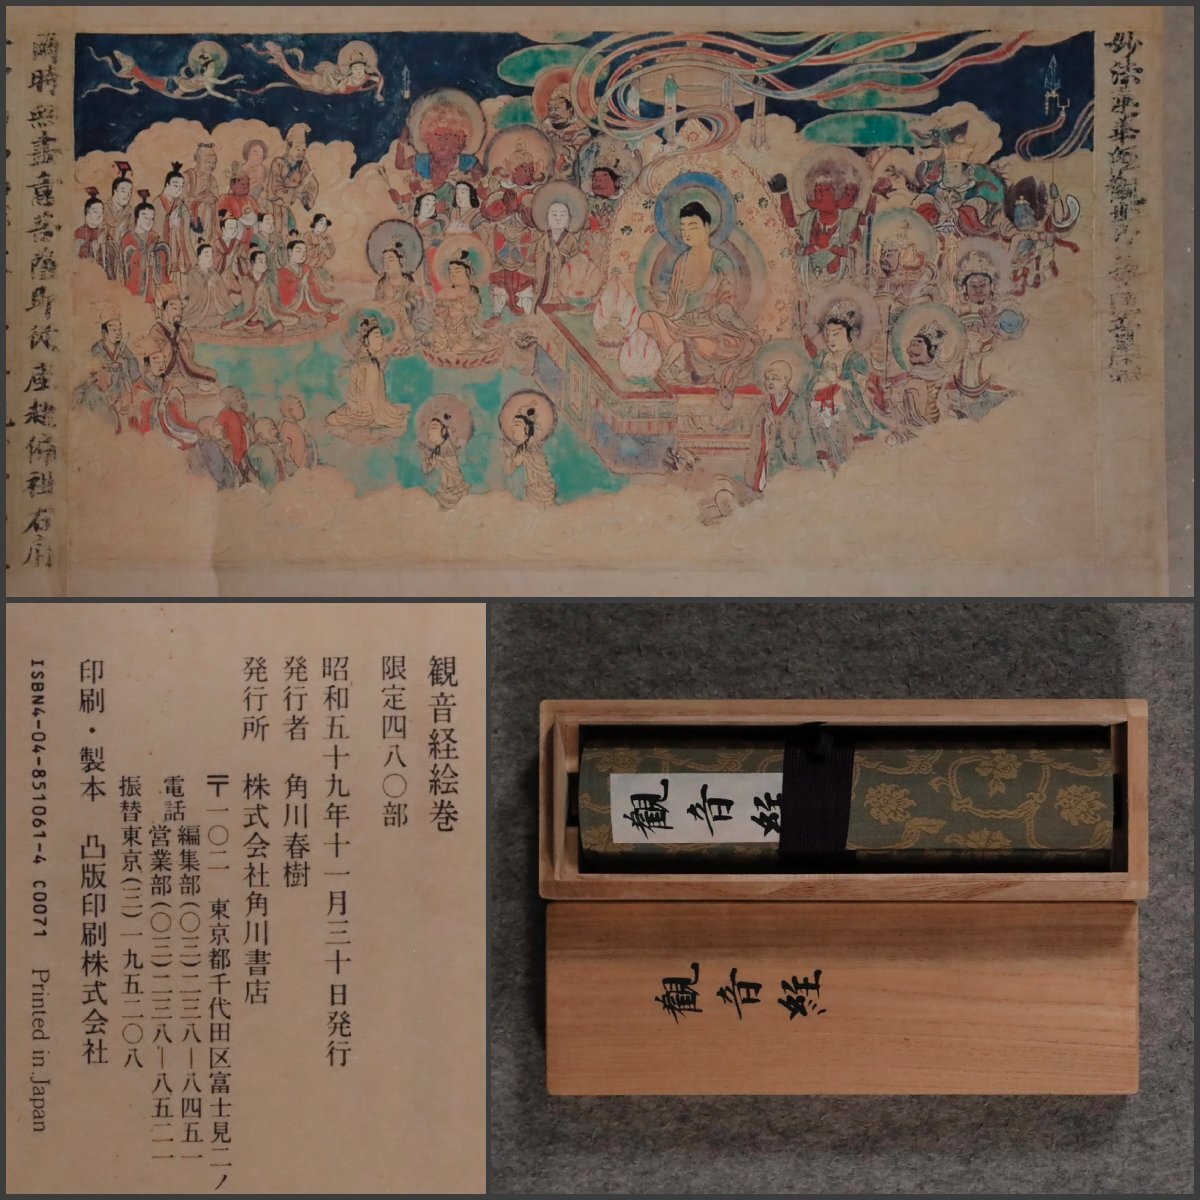 妙法蓮華経観世音菩薩普門品
爾時無盡意菩薩即従座起偏袒右肩
観音経絵巻
限定四八〇部
昭和五十九年十一月三十日発行
発行者 角川春樹
発行所 株式会社角川書店
〒一〇二 東京都千代田区富士見二ノ
電話 編集部(〇三)二三八―八四五一
営業部(〇三)二三八―八五二一
振替東京(三)一九五二〇八
印刷・製本 凸版印刷株式会社
ISBN4-04-851061-4 C0071 Printed in Japan
觀音経
觀音経